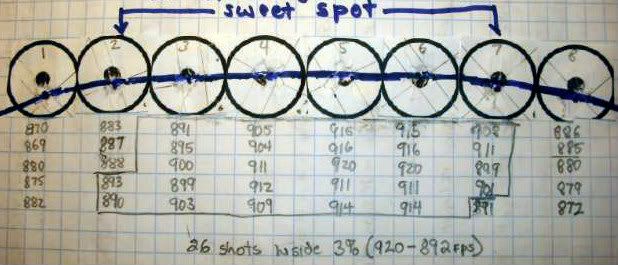 sweet spot
1 2 3 4 5 6 7 8
870 883 891 905 915 915 902 886
869 887 895 904 916 916 911 885
880 888 900 911 920 920 899 880
875 893 899 912 911 911 901 879
882 890 903 909 914 914 891 872
26 shots inside 3% (920-892fps)